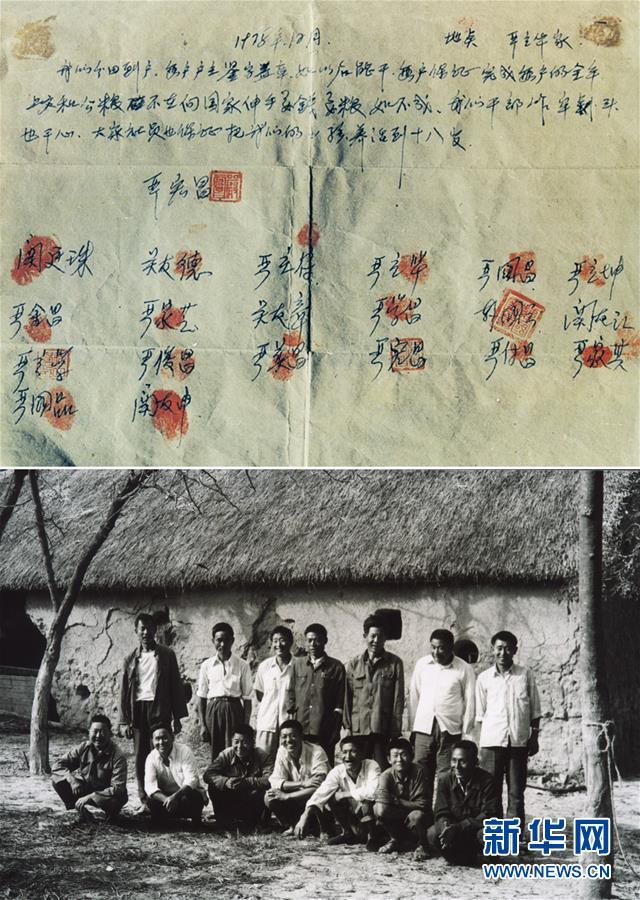 1978年12月. 地点 严立华家.
我们分田到户,每户户主签字盖章,如以后能干,每户保证完成每户的全年
上交和公粮.不在向国家伸手要钱要粮.如不成,我们干部作牢刹头
也干心.大家社员也保证把我们的小孩养活到十八岁.
严宏昌
关廷珠 关友德 严立符 严立华 严国昌 严立坤
严金昌 严家芝 关友章 严学昌 韩国云 关友江
严立学 严俊昌 严美昌 严宏昌 严付昌 严家其
严国品 关友申
新华网
WWW.NEWS.CN